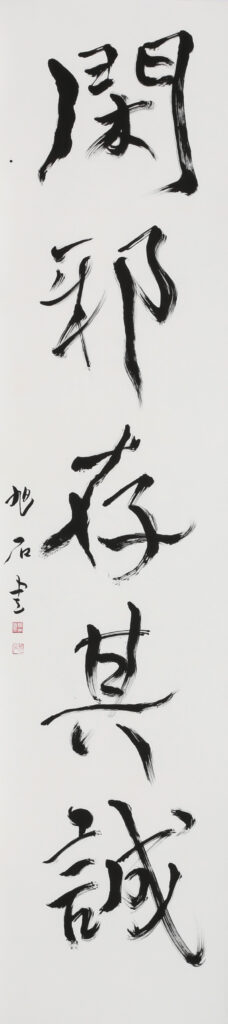 閑邪存其誠
旭石書